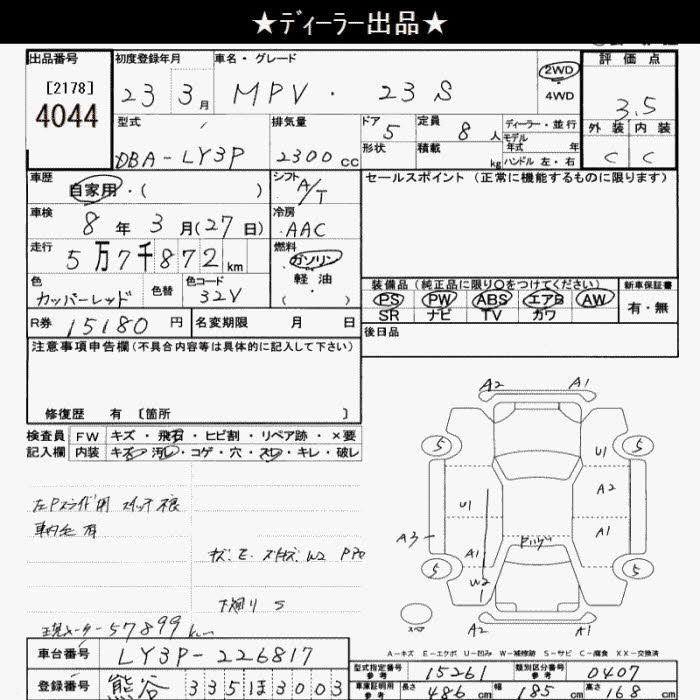 ★ディーラー出品★
出品番号 初度登録年月 車名・グレード 2WD 評価点
[2178] 23 3月 MPV・23S 4WD 3.5
4044 型式 排気量 ドア 5 定員 8人 ディーラー・並行 外装 内装
モデル年式 年
DBA-LY3P 2300cc 形状 積載 kg ハンドル 左・右 C C
車歴 自家用・( ) シフト A/T セールスポイント (正常に機能するものに限ります)
車検 8年3月(27日) 冷房 AAC
走行 5万7千872km 燃料 ガソリン
軽油
( )
色 カッパーレッド 色替 色コード 32V
装備品 (純正品に限り〇をつけてください) 新車保証書
PS PW ABS エアB AW 有・無
SR ナビ TV カワ
R券 15180円 名変期限 月 日 後日品
注意事項申告欄 (不具合内容等は具体的に記入して下さい)
修復歴 有 [箇所 ]
検査員 FW キズ・飛石・ヒビ割・リペア跡・×要
記入欄 内装 キズ・汚レ・コゲ・穴・スレ・キレ・破レ
A2 A1
5 5
U1
U1 A2
A3 A1 A1
W2
5 5
A2 A1
W2
下廻り S
現メーター57899km
A-キズ E-エクボ U-凹み W-補修跡 S-サビ C-腐食 XX-交換済
車台番号 LY3P-226817 型式指定番号 参考 15261 類別区分番号 参考 0407
登録番号 熊谷 335 ほ 3003 車庫証明用 参考 長さ 486cm 幅 185cm 高さ 168cm